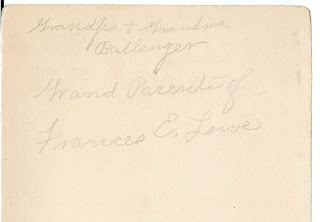 Grandpa & Grandma
Ballenger
Grand Parents of
Frances E. Lowe